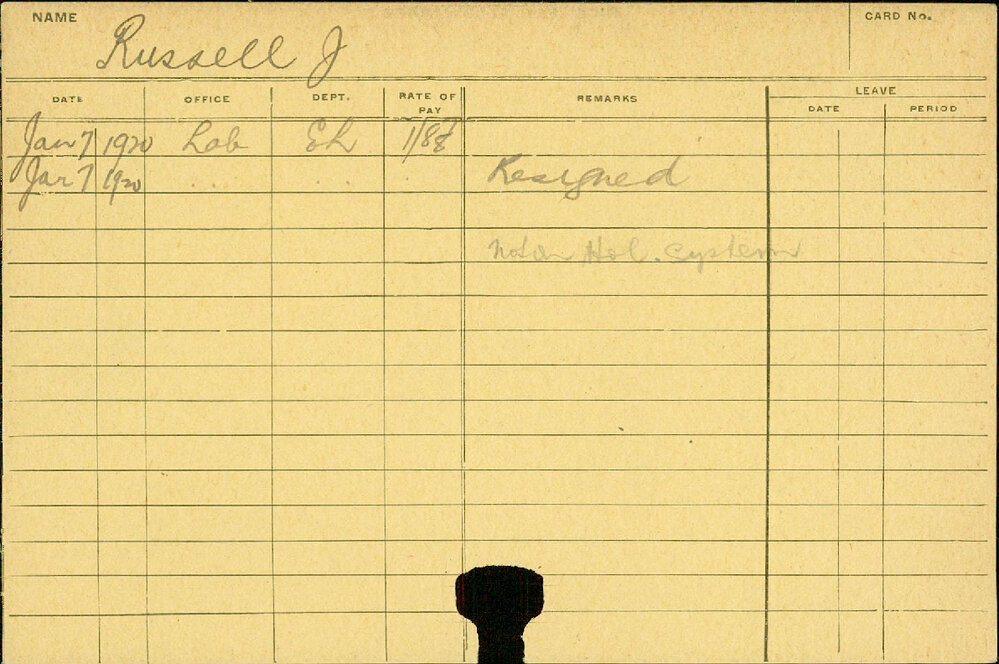 NAME
Russell J
CARD No.
DATE OFFICE DEPT. RATE OF PAY REMARKS LEAVE
DATE PERIOD
Jan 7 1920 Lab Eh
Jan 7 1920 Resigned
Hol. System